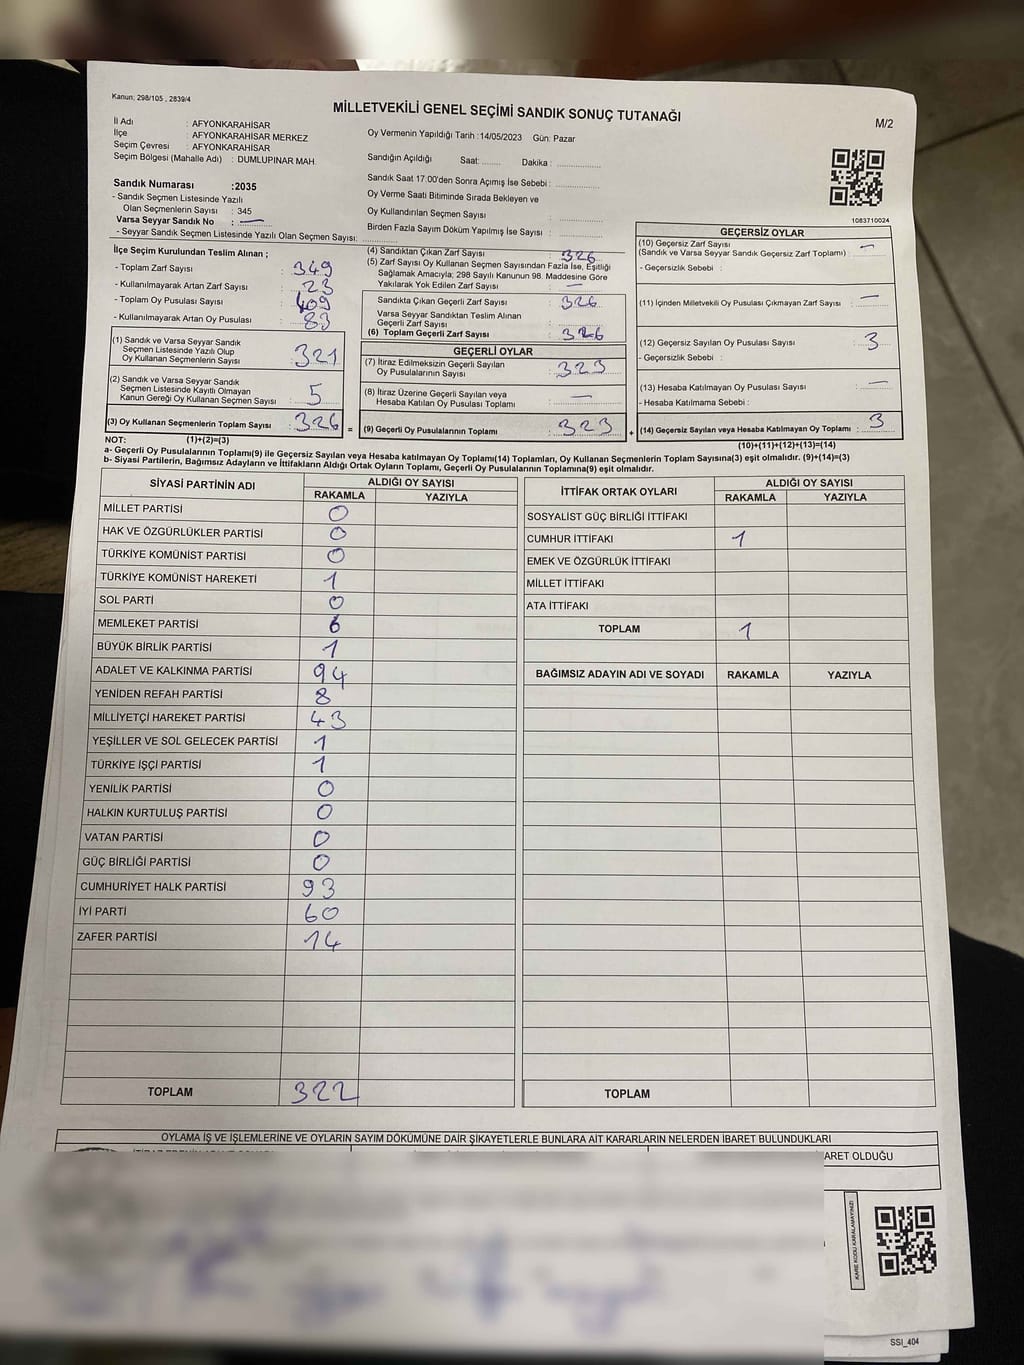 Kanun; 298/105 , 2839/4
MİLLETVEKİLİ GENEL SEÇİMİ SANDIK SONUÇ TUTANAĞI
M/2
İl Adı : AFYONKARAHİSAR
İlçe : AFYONKARAHİSAR MERKEZ
Seçim Çevresi : AFYONKARAHİSAR
Seçim Bölgesi (Mahalle Adı) : DUMLUPINAR MAH.
Oy Vermenin Yapıldığı Tarih :14/05/2023 Gün: Pazar
Sandığın Açıldığı Saat:........ Dakika : ................
Sandık Saat 17:00'den Sonra Açımış İse Sebebi : ................
Oy Verme Saati Bitiminde Sırada Bekleyen ve
Oy Kullandırılan Seçmen Sayısı : ................
Birden Fazla Sayım Döküm Yapılmış İse Sayısı : ................
Sandık Numarası :2035
- Sandık Seçmen Listesinde Yazılı
Olan Seçmenlerin Sayısı : 345
Varsa Seyyar Sandık No : —
- Seyyar Sandık Seçmen Listesinde Yazılı Olan Seçmen Sayısı: ................
1083710024
İlçe Seçim Kurulundan Teslim Alınan ;
- Toplam Zarf Sayısı : 349
- Kullanılmayarak Artan Zarf Sayısı : 23
- Toplam Oy Pusulası Sayısı : 409
- Kullanılmayarak Artan Oy Pusulası : 83
(1) Sandık ve Varsa Seyyar Sandık
Seçmen Listesinde Yazılı Olup
Oy Kullanan Seçmenlerin Sayısı : 321
(2) Sandık ve Varsa Seyyar Sandık
Seçmen Listesinde Kayıtlı Olmayan
Kanun Gereği Oy Kullanan Seçmen Sayısı : 5
(3) Oy Kullanan Seçmenlerin Toplam Sayısı : 326 =
(4) Sandıktan Çıkan Zarf Sayısı : 326
(5) Zarf Sayısı Oy Kullanan Seçmen Sayısından Fazla İse, Eşitliği
Sağlamak Amacıyla; 298 Sayılı Kanunun 98. Maddesine Göre
Yakılarak Yok Edilen Zarf Sayısı : —
Sandıkta Çıkan Geçerli Zarf Sayısı : 326
Varsa Seyyar Sandıktan Teslim Alınan
Geçerli Zarf Sayısı :
(6) Toplam Geçerli Zarf Sayısı : 326
GEÇERLİ OYLAR
(7) İtiraz Edilmeksizin Geçerli Sayılan
Oy Pusulalarının Sayısı : 323
(8) İtiraz Üzerine Geçerli Sayılan veya
Hesaba Katılan Oy Pusulası Toplamı : —
(9) Geçerli Oy Pusulalarının Toplamı : 323 +
GEÇERSİZ OYLAR
(10) Geçersiz Zarf Sayısı : —
(Sandık ve Varsa Seyyar Sandık Geçersiz Zarf Toplamı)
- Geçersizlik Sebebi :
(11) İçinden Milletvekili Oy Pusulası Çıkmayan Zarf Sayısı : —
(12) Geçersiz Sayılan Oy Pusulası Sayısı : 3
- Geçersizlik Sebebi :
(13) Hesaba Katılmayan Oy Pusulası Sayısı : —
- Hesaba Katılmama Sebebi :
(14) Geçersiz Sayılan veya Hesaba Katılmayan Oy Toplamı : 3
NOT: (1)+(2)=(3)
(10)+(11)+(12)+(13)=(14)
a- Geçerli Oy Pusulalarının Toplamı(9) ile Geçersiz Sayılan veya Hesaba katılmayan Oy Toplamı(14) Toplamları, Oy Kullanan Seçmenlerin Toplam Sayısına(3) eşit olmalıdır. (9)+(14)=(3)
b- Siyasi Partilerin, Bağımsız Adayların ve İttifakların Aldığı Ortak Oyların Toplamı, Geçerli Oy Pusulalarının Toplamına(9) eşit olmalıdır.
SİYASİ PARTİNİN ADI ALDIĞI OY SAYISI
RAKAMLA YAZIYLA
MİLLET PARTİSİ 0
HAK VE ÖZGÜRLÜKLER PARTİSİ 0
TÜRKİYE KOMÜNİST PARTİSİ 0
TÜRKİYE KOMÜNİST HAREKETİ 1
SOL PARTİ 0
MEMLEKET PARTİSİ 6
BÜYÜK BİRLİK PARTİSİ 1
ADALET VE KALKINMA PARTİSİ 94
YENİDEN REFAH PARTİSİ 8
MİLLİYETÇİ HAREKET PARTİSİ 43
YEŞİLLER VE SOL GELECEK PARTİSİ 1
TÜRKİYE İŞÇİ PARTİSİ 1
YENİLİK PARTİSİ 0
HALKIN KURTULUŞ PARTİSİ 0
VATAN PARTİSİ 0
GÜÇ BİRLİĞİ PARTİSİ 0
CUMHURİYET HALK PARTİSİ 93
İYİ PARTİ 60
ZAFER PARTİSİ 14
TOPLAM 322
İTTİFAK ORTAK OYLARI ALDIĞI OY SAYISI
RAKAMLA YAZIYLA
SOSYALİST GÜÇ BİRLİĞİ İTTİFAKI
CUMHUR İTTİFAKI 1
EMEK VE ÖZGÜRLÜK İTTİFAKI
MİLLET İTTİFAKI
ATA İTTİFAKI
TOPLAM 1
BAĞIMSIZ ADAYIN ADI VE SOYADI RAKAMLA YAZIYLA
TOPLAM
OYLAMA İŞ VE İŞLEMLERİNE VE OYLARIN SAYIM DÖKÜMÜNE DAİR ŞİKAYETLERLE BUNLARA AİT KARARLARIN NELERDEN İBARET BULUNDUKLARI
ARET OLDUĞU
KARE KODU KARALAMAYINIZ!
SSI_404